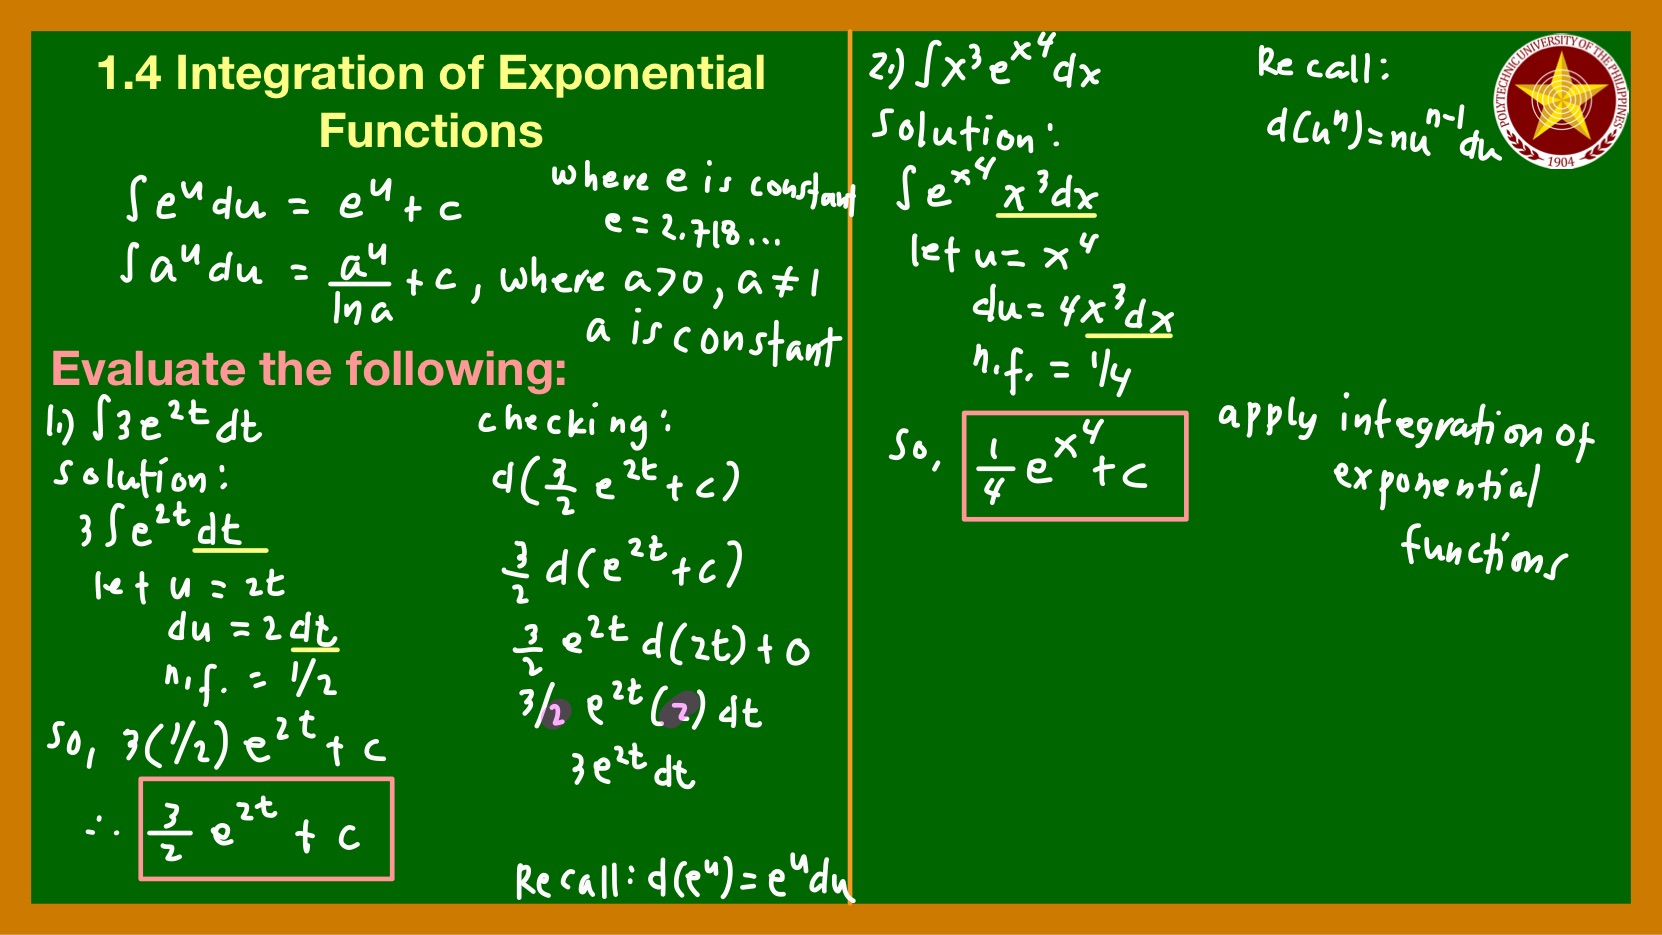 1.4 Integration of Exponential
Functions
∫e^u du = e^u + c
where e is constant
e = 2.718...
∫a^u du = a^u/ln a + c, where a>0, a≠1
a is constant
Evaluate the following:
1.) ∫3e^2t dt
solution:
3∫e^2t dt
let u = 2t
du = 2 dt
n.f. = 1/2
so, 3(1/2) e^2t + c
∴ 3/2 e^2t + c
checking:
d(3/2 e^2t + c)
3/2 d(e^2t + c)
3/2 e^2t d(2t) + 0
3/2 e^2t (2) dt
3e^2t dt
Recall: d(e^u) = e^u du
2.) ∫x^3 e^x^4 dx
Solution:
∫e^x^4 x^3 dx
let u = x^4
du = 4x^3 dx
n.f. = 1/4
so, 1/4 e^x^4 + c
Recall:
d(u^n) = nu^n-1 du
apply integration of
exponential
functions
POLYTECHNIC UNIVERSITY OF THE PHILIPPINES
1904